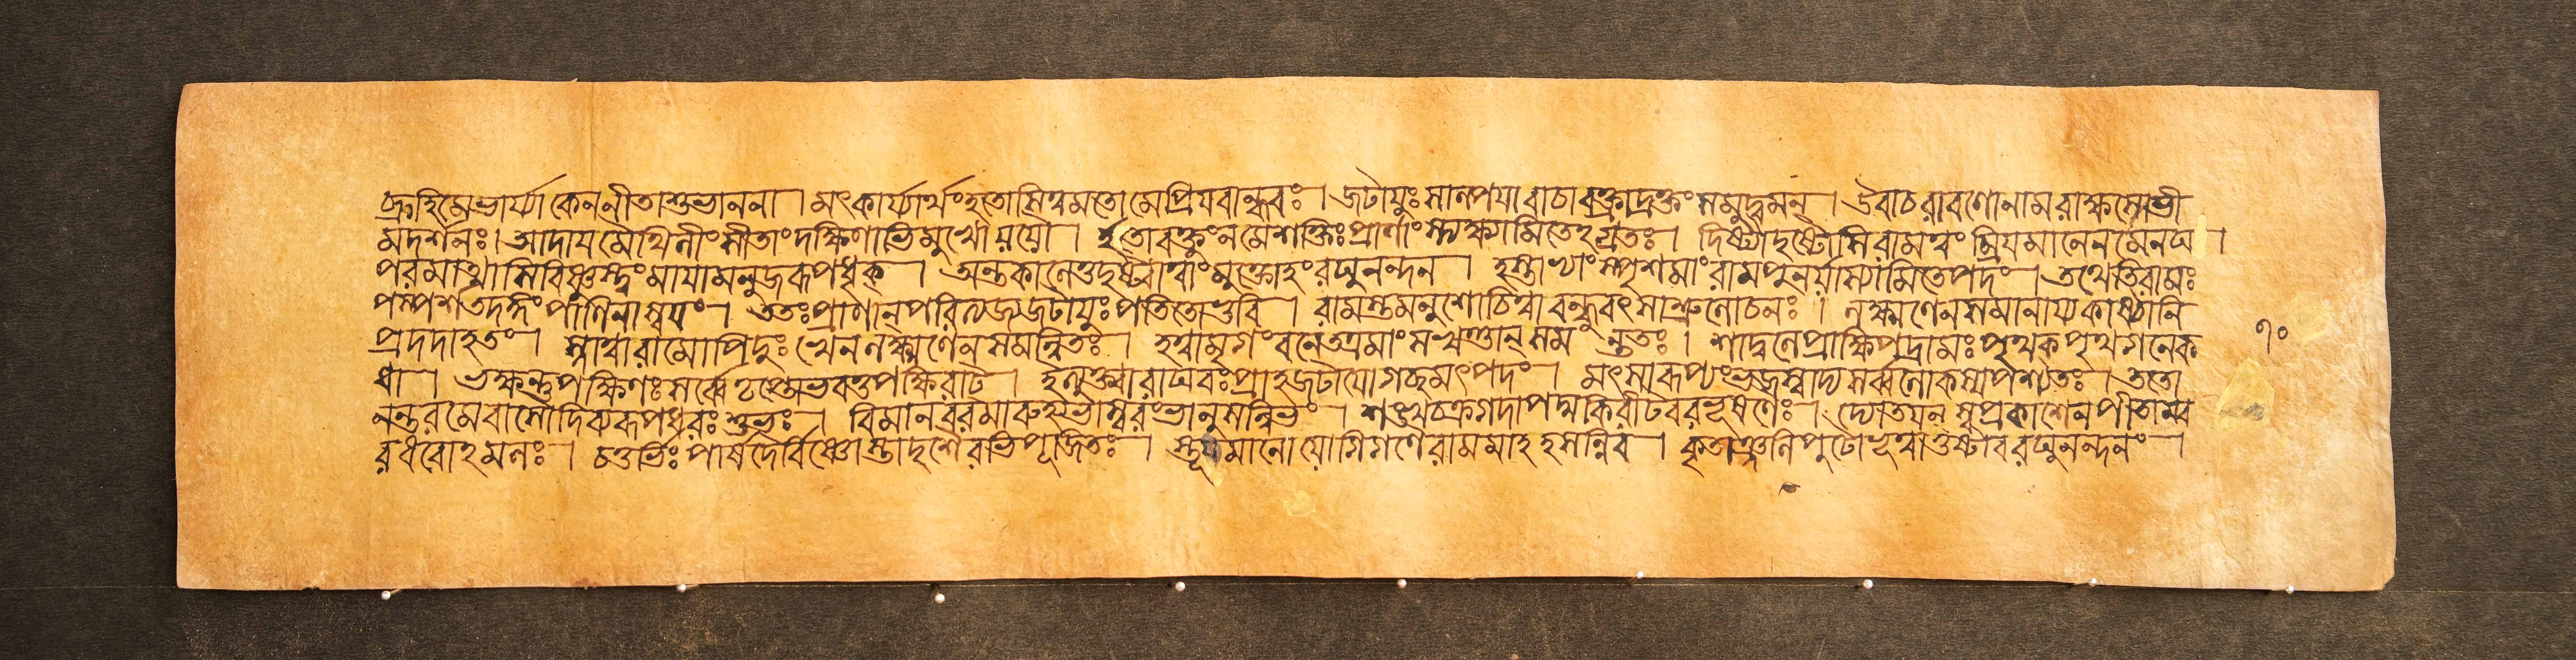 ব্রূহিমেভার্য্যাকেননীতাশুভাননা । মৎকার্য্যার্থংহতোসিত্বমতোমেপ্রিযবান্ধবঃ । জটাযুঃসন্নযাবাচাবক্ত্রাদ্রক্তংসমুদ্বমন্ । উবাচৰাবণোনামৰাক্ষসোভী
মদৰ্শনঃ । আদাযমৈথিলীংসীতাংদক্ষিণাভিমুখোযযৌ । ইতোবক্তুংনমেশক্তিঃপ্রাণাংস্ত্যক্ষ্যামিতেঽগ্রতঃ । দিষ্ট্যাদৃষ্টোসিৰামত্বংম্রিযমাণেনমেনঘ ।
পৰমাত্মাসিবিষ্ণুস্ত্বংমাযামনুজৰূপধৃক্ । অন্তকালেতুদৃষ্ট্বাত্বাংমুক্তোহংৰঘুনন্দন । হস্তাভ্যাংস্পৃশমাংৰামপুনৰ্যাস্যামিতেপদং । তথেতিৰামঃ
পস্পৰ্শতদঙ্গংপাণিনাস্বযং । ততঃপ্রাণান্পৰিত্যজ্যজটাযুঃপতিতোভুবি । ৰামস্তমনুশোচিত্বাবন্ধুবৎসাশ্রুলোচনঃ । লক্ষ্মণেনসমানায্যকাষ্ঠানি
প্রদদাহতং । স্নাত্বাৰামোপিদুঃখেনলক্ষ্মণেনসমন্বিতঃ । হত্বামৃগংবনেতত্রমাংসখণ্ডান্সমন্ততঃ । শাদ্বলেপ্রাক্ষিপদ্রামঃপৃথক্পৃথগনেক
ধা । ভক্ষন্তুপক্ষিণঃসর্ব্বেতৃপ্তোভবতুপক্ষিৰাট্ । ইত্যুক্ত্বাৰাঘবঃপ্রাহজটাযোগচ্ছমৎপদং । মৎসাৰূপ্যংভজস্বাদ্যসর্ব্বলোকস্যপশ্যতঃ । ততো
নন্তৰমেবাসৌদিব্যৰূপধৰঃশুভঃ । বিমানবৰমাৰুহ্যভাস্বৰংভানুসন্নিভং । শঙ্খচক্রগদাপদ্মকিৰীটবৰভূষণৈঃ । দ্যোতযন্স্বপ্রকাশেনপীতাম্ব
ৰধৰোঽমলঃ । চতুৰ্ভিঃপাৰ্ষদৈৰ্বিষ্ণোস্তাদৃশৈৰভিপূজিতঃ । স্তূযমানোযোগিগণৈৰামমাহহসন্নিব । কৃতাঞ্জলিপুটোভূত্বাতুষ্টাবৰঘুনন্দনং ।
৭০